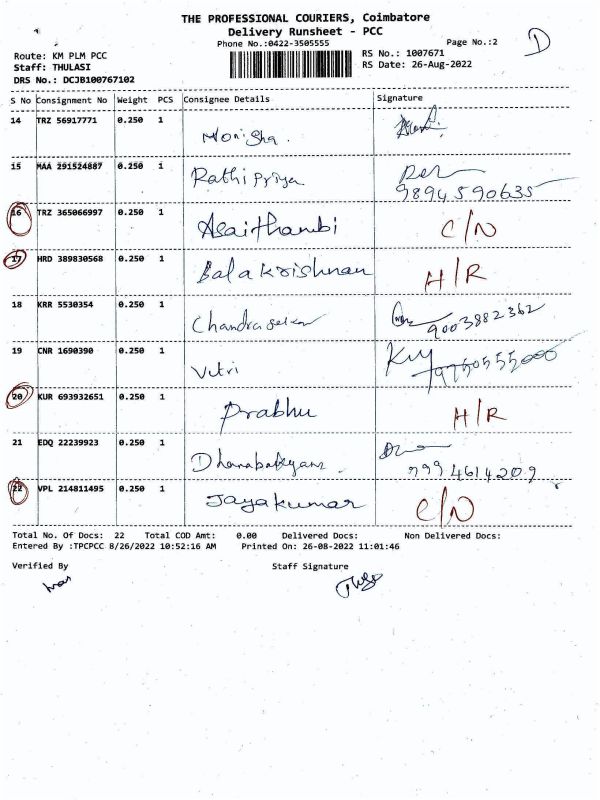 THE PROFESSIONAL COURIERS, Coimbatore
Delivery Runsheet - PCC
Phone No.:0422-3505555 Page No.:2 D
Route: KM PLM PCC RS No.: 1007671
Staff: THULASI RS Date: 26-Aug-2022
DRS No.: DCJB100767102
S No Consignment No Weight PCS Consignee Details Signature
14 TRZ 56917771 0.250 1 Monisha.
15 MAA 291524887 0.250 1 Rathi Priya
9894590635
16 TRZ 365066997 0.250 1 Asaithambi C/N
17 HRD 389830568 0.250 1 Balakrishnan H/R
18 KRR 5530354 0.250 1 Chandrasekar 9003882362
19 CNR 1690390 0.250 1 Vetri 9750555000
20 KUR 693932651 0.250 1 Prabhu H/R
21 EDQ 22239923 0.250 1 9994614209
22 VPL 214811495 0.250 1 Jayakumar C/N
Total No. Of Docs: 22 Total COD Amt: 0.00 Delivered Docs: Non Delivered Docs:
Entered By :TPCPCC 8/26/2022 10:52:16 AM Printed On: 26-08-2022 11:01:46
Verified By Staff Signature